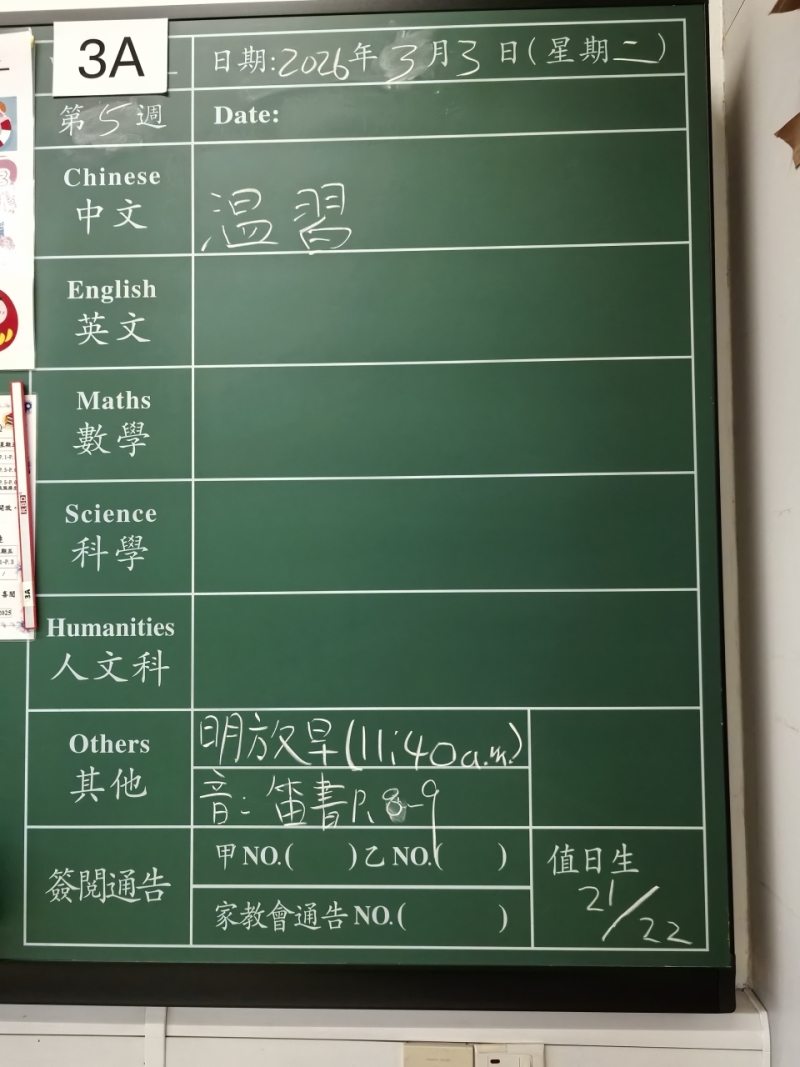 3A
日期:2026年3月3日(星期二)
第5週
Date:
Chinese
中文
温習
English
英文
Maths
數學
Science
科學
Humanities
人文科
Others
其他
明放早(11:40a.m.)
音:笛書P.8-9
簽閱通告
甲NO.( )乙NO.( )
家教會通告NO.( )
值日生
21/22